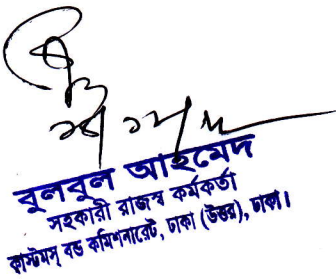 বুলবুল আহমেদ
সহকারী রাজস্ব কর্মকর্তা
কাস্টমস্ বন্ড কমিশনারেট, ঢাকা (উত্তর), ঢাকা।